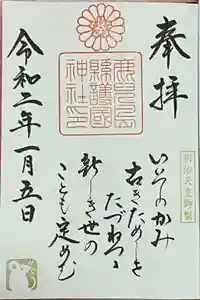 奉拝
鹿児島
縣護國
神社印
明治天皇御製
いそのかみ
古きためしを
たづねつゝ
新しき世の
ことも定めむ
令和二年一月五日